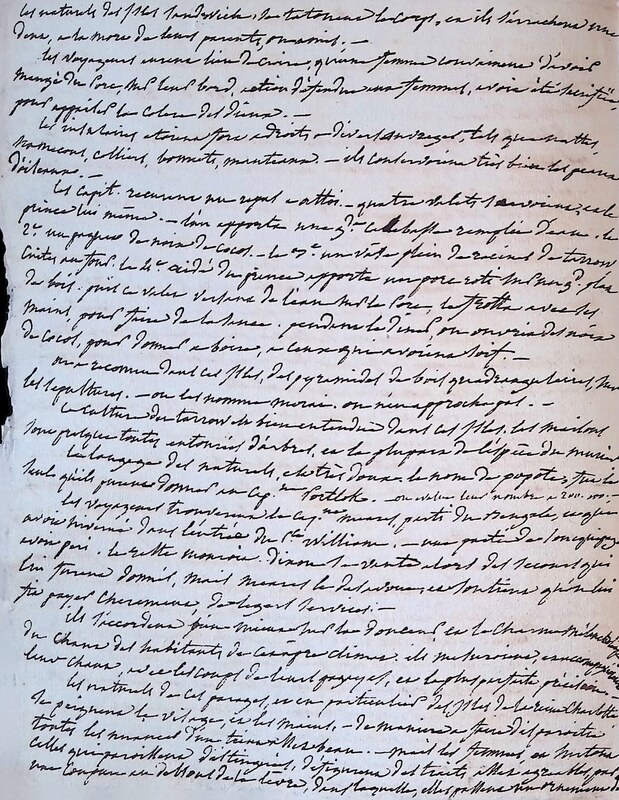 les naturels des Isles Sandwich, se tatouent le corps, et ils s'arrachent une
dent, a la mort de leurs parents, ou amis. —
les voyageurs eurent lieu de croire, qu'une femme convaincue d'avoir
mangé du Porc, sur leur bord, action défendue aux femmes, avoit été sacrifiée,
pour appaiser la colere des Dieux. —
les insulaires etoient fort adroits a divers ouvrages, tels que nattes,
hameçons, colliers, bonnets, manteaux. — ils conservoient très bien les peaux
d'oiseaux. —
les capit. recurent un repas — quatre valets servoient, et le
prince lui même. — l'un apporta une gde calebasse remplie d'eau. le
2e un paquet de noix de Cocos. — le 3e un vase plein de racines de tarrow
cuites au four. le 4e aidé du prince apporta un porc roti sur un gd plat
de bois. puis ce valet versant de l'eau sur le Porc, le frotta avec les
mains, pour faire de la sauce. pendant le diner on ouvrit des noix
de Cocos, pour donner a boire, a ceux qui avoient soif. —
on a reconnu dans ces Isles, des pyramides de bois quadrangulaires, sur
les sepultures. — on les nomme morai. on n'en approche pas. —
la culture du tarrow est bien entendue dans ces Isles, les maisons
sont presque toutes entourées d'arbres, et la plupart de l'espèce du murier
le langage des naturels, est très doux. le nom de popote, fut le
seul qu'ils purent donner au Cap.ne Portlok. — on evalue leur nombre a 200.000. —
les voyageurs trouverent le Cap.ne meares, parti du Bengale, et qui
avoit hiverné dans l'entrée du Pce William. — une partie de son equipage
avoit peri. le reste mouroit. Dixon se vante alors des secours qui
lui furent donnés, mais meares le desavoue, et soutient qu'on lui
fit payer cherement, de legers services. —
ils s'accordent bien mieux sur la douceur, et le charme mélancolique
du chant des habitants de cet apre climat. ils mesurent, et accompagnent
leur chant avec les coups de leurs pagayes, et la plus parfaite précision. —
les naturels de ces parages, et en particulier des Isles de la reine Charlotte
se peignent le visage, et les mains, — de maniere a faire disparoitre
toutes les nuances d'un teint assez beau. — mais les femmes, et surtout
celles que paroissent distinguées, défigurent des traits assez agreables, par
une coupure au dessous de la levre, dans laquelle, elles passent un ornement de